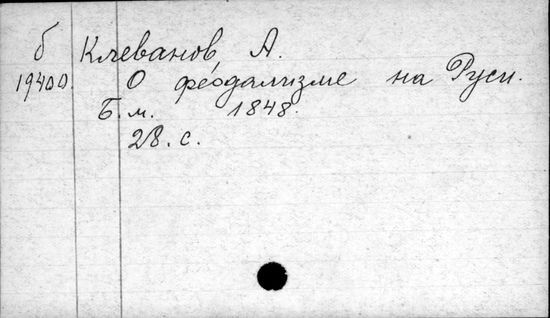 б Клеванов, А.
19400. О феодализме на Руси.
Б. м. 1848.
28. с.